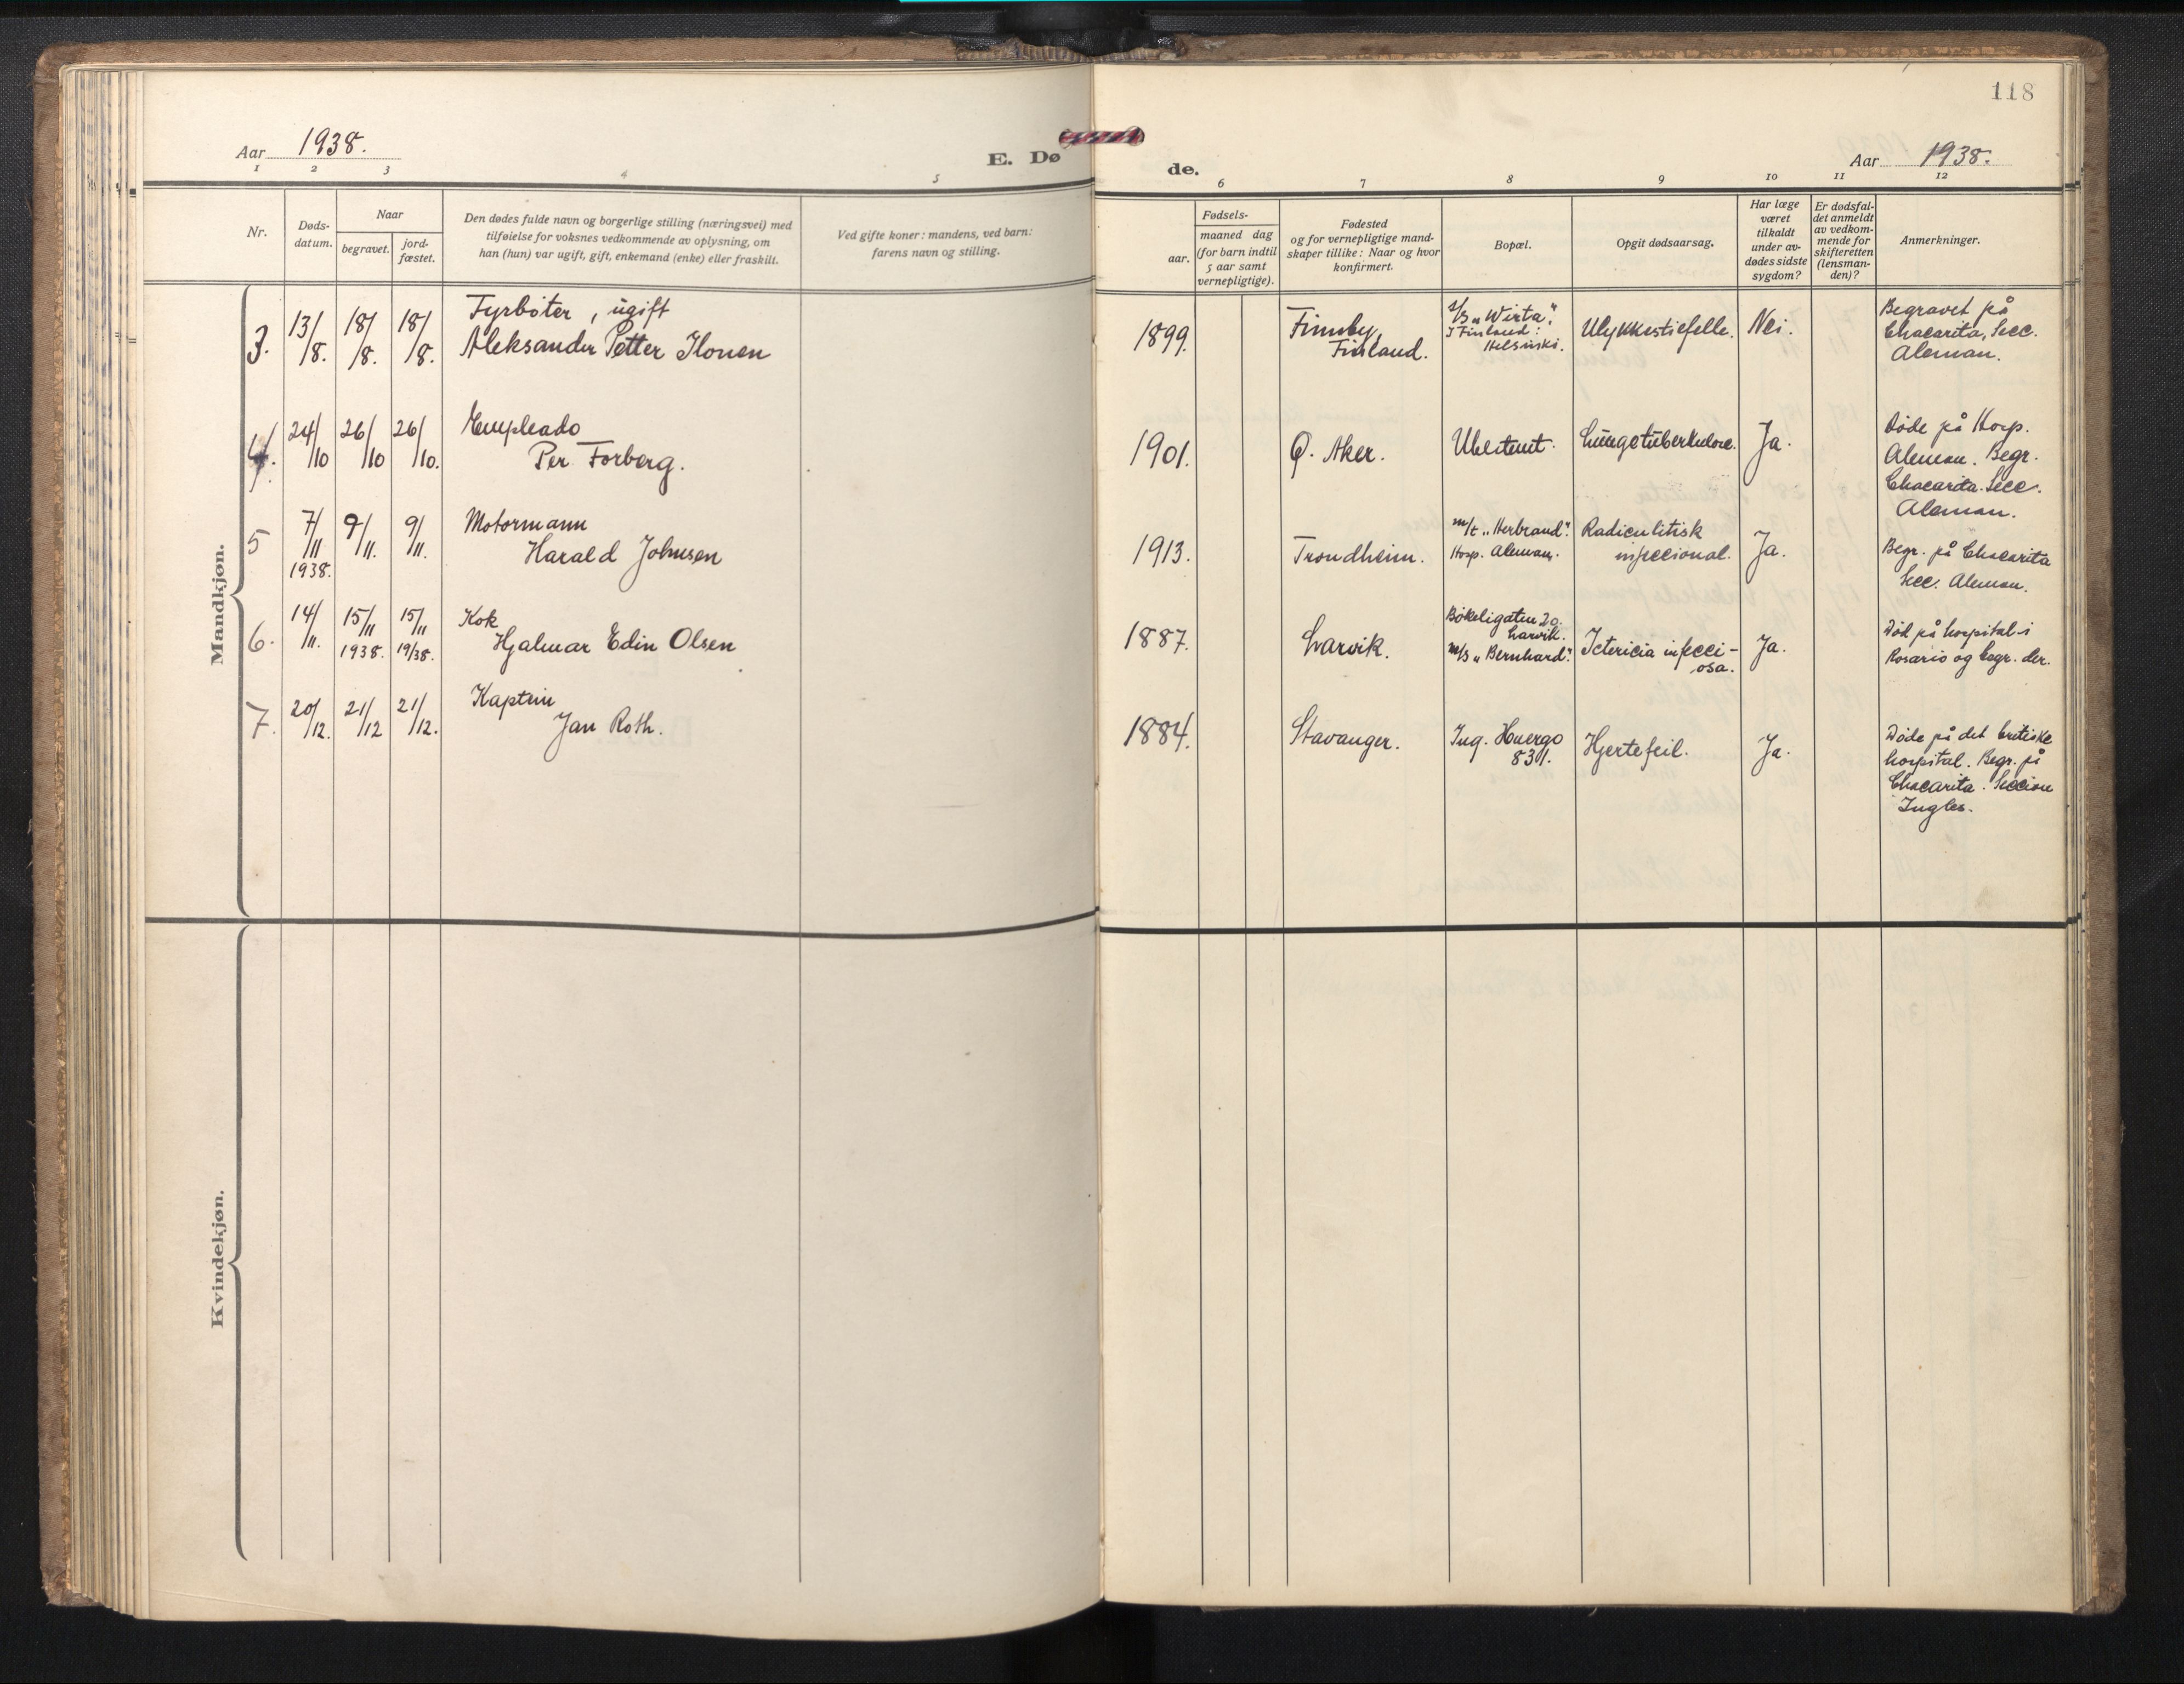 118
Aar 1938.
E. Dø de.
Aar 1938.
1 2 3 4 5 6 7 8 9 10 11 12
Nr.
Døds-
datum.
Naar
begravet.
jord-
fæstet.
Den dødes fulde navn og borgerlige stilling (næringsvei) med
tilføielse for voksnes vedkommende av oplysning, om
han (hun) var ugift, gift, enkemand (enke) eller fraskilt.
Ved gifte koner: mandens, ved barn:
farens navn og stilling.
Fødsels-
aar.
maaned dag
(for barn indtil
5 aar samt
vernepligtige).
Fødested
og for vernepligtige mand-
skaper tillike: Naar og hvor
konfirmert.
Bopæl.
Opgit dødsaarsag.
Har læge
været
tilkaldt
under av-
dødes sidste
sygdom?
Er dødsfal-
det anmeldt
av vedkom-
mende for
skifteretten
(lensman-
den)?
Anmerkninger.
Mandkjøn.
3. 13/8. 18/8. 18/8.
Fyrböter, ugift
Aleksander Petter Ilonen
1899.
Finnby,
Finland.
S/S „Wirta".
I Finland:
Helsinski.
Ulykkestilfelle.
Nei.
Begravet på
Chacarita, Secc.
Aleman.
4. 24/10 26/10 26/10.
Empleado
Per Forberg.
1901.
Ø. Aker.
Ubestemt.
Lungetuberkulose.
Ja.
Døde på Hosp.
Aleman. Begr.
Chacarita. Secc.
Aleman.
5 7/11 1938. 9/11. 9/11.
Motormann
Harald Johnsen
1913.
Trondheim.
m/t „Herbrand".
Hosp. Aleman.
Radiculitisk
infeccional.
Ja.
Begr. på Chacarita
Secc. Aleman.
6. 14/11. 15/11 1938. 15/11 19/38.
Kok
Hjalmar Edin Olsen
1887.
Larvik.
Bökeligaten 20.
Larvik.
m/s „Bernhard".
Ictericia infecci-
osa.
Ja.
Död på hospital i
Rosario og begr. der.
7. 20/12. 21/12 21/12.
Kaptein
Jan Roth.
1884.
Stavanger.
Ing. Huergo
831.
Hjertefeil.
Ja.
Döde på det britiske
hospital. Begr. på
Chacarita. Seccion
Ingles.
Kvindekjøn.